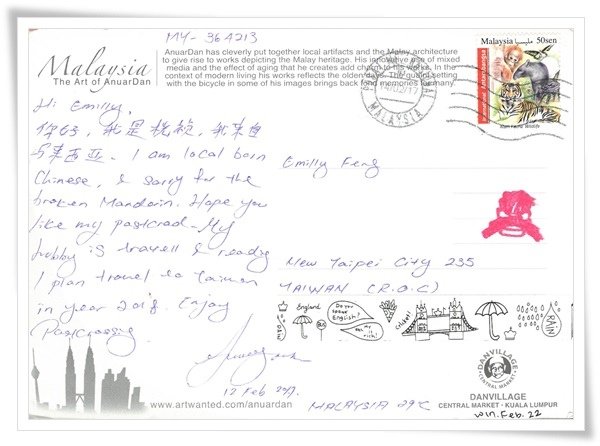 MY-364213
Malaysia
The Art of AnuarDan
AnuarDan has cleverly put together local artifacts and the Malay architecture
to give rise to works depicting the Malay heritage. His innovative use of mixed
media and the effect of aging that he creates add charm to his works. In the
context of modern living his works reflects the olden days. The quaint setting
with the bicycle in some of his images brings back fond memories for many.
Malaysia مليسيا 50sen
MALAYSIA
Hi Emilly,
你好, 我是 我来自
马来西亚. I am local born
Chinese, & sorry for the
broken Mandarin. Hope you
like my postcrad. My
hobby is travell & reading
I plan travel to Taiwan
in year 2018. Enjoy
Postcrossing.
12 Feb 2017.
Emilly Feng
New Taipei City 235
TAIWAN (R.O.C)
England
Do you speak English?
Cricket!
RAIN
DANVILLAGE
CENTRAL MARKET
DANVILLAGE
CENTRAL MARKET - KUALA LUMPUR
www.artwanted.com/anuardan
MALAYSIA 29°C
Win. Feb. 22